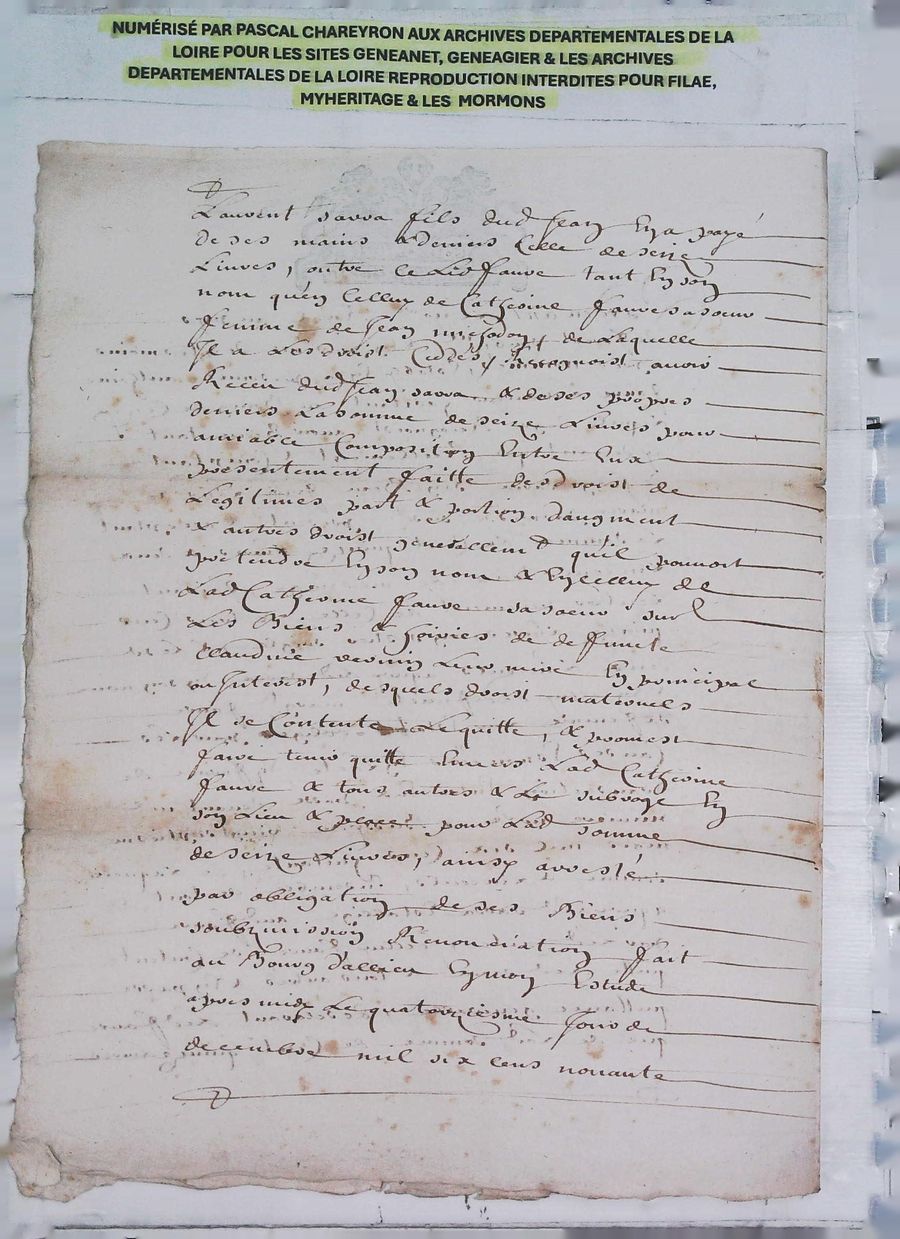 NUMÉRISÉ PAR PASCAL CHAREYRON AUX ARCHIVES DEPARTEMENTALES DE LA
LOIRE POUR LES SITES GENEANET, GENEAGIER & LES ARCHIVES
DEPARTEMENTALES DE LA LOIRE REPRODUCTION INTERDITES POUR FILAE,
MYHERITAGE & LES MORMONS
Laurent savva fils dud Jean luy a payé
de ses mains & deniers celle de seize
Liures, outre le Led fauve tant en son
nom quen celluy de Catherine fauve sa soeur
femme de Jean de Laquelle
Il a Les droist Cedés, Recognoist auoir
Receu dud Jean savva & de ses propres
deniers La somme de seize Liures pour
amiable Composition Entre Eux
presentement faitte des droist de
Legitimes part & portion daugment
& autres droist generallemt quil pouuoit
pretendre En son nom & En celluy de
Lad Catherine fauve sa soeur sur
Les Biens & hoiries de deffuncte
Claudine leur mere En principal
ou Interest, desquels droist maternels
Il se Contente Le quitte, & promest
faire tenir quitte Enuers Lad Catherine
fauve & tous autres & Le subroge En
son Lieu & place pour Lad somme
de seize Liures, ainsy arresté
par obligation de ses Biens
soubzmission Renonciation fait
au Bourg d'allieu En mon Estude
apres midy Le quatorziesme Jour de
decembre mil six cens nonante